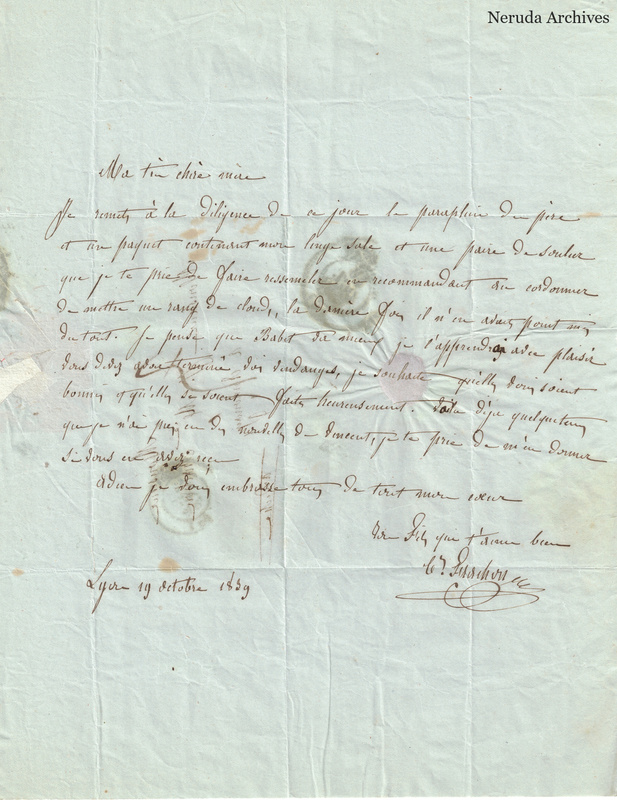 Neruda Archives
Ma très chère mère
Je remets à la diligence de ce jour le parapluie du père
et un paquet contenant mon linge sale et une paire de soulier
que je te prie de faire ressemeler en recommandant au cordonnier
de mettre un rang de cloud, la dernière fois il n'en avait point mis
du tout. Je pense que Babet va mieux je l'apprendrai avec plaisir
vous devez avoir terminé vos vendanges, je souhaite qu'elles vous soient
bonnes et qu'elles se soient faites heureusement. Voilà déjà quelque temps
que je n'ai pas eu des nouvelles de Vincent, je te prie de m'en donner
si vous en avez reçu
Adieu je vous embrasse tous de tout mon cœur
ton Fils que t'aime bien
Lyon 19 octobre 1839